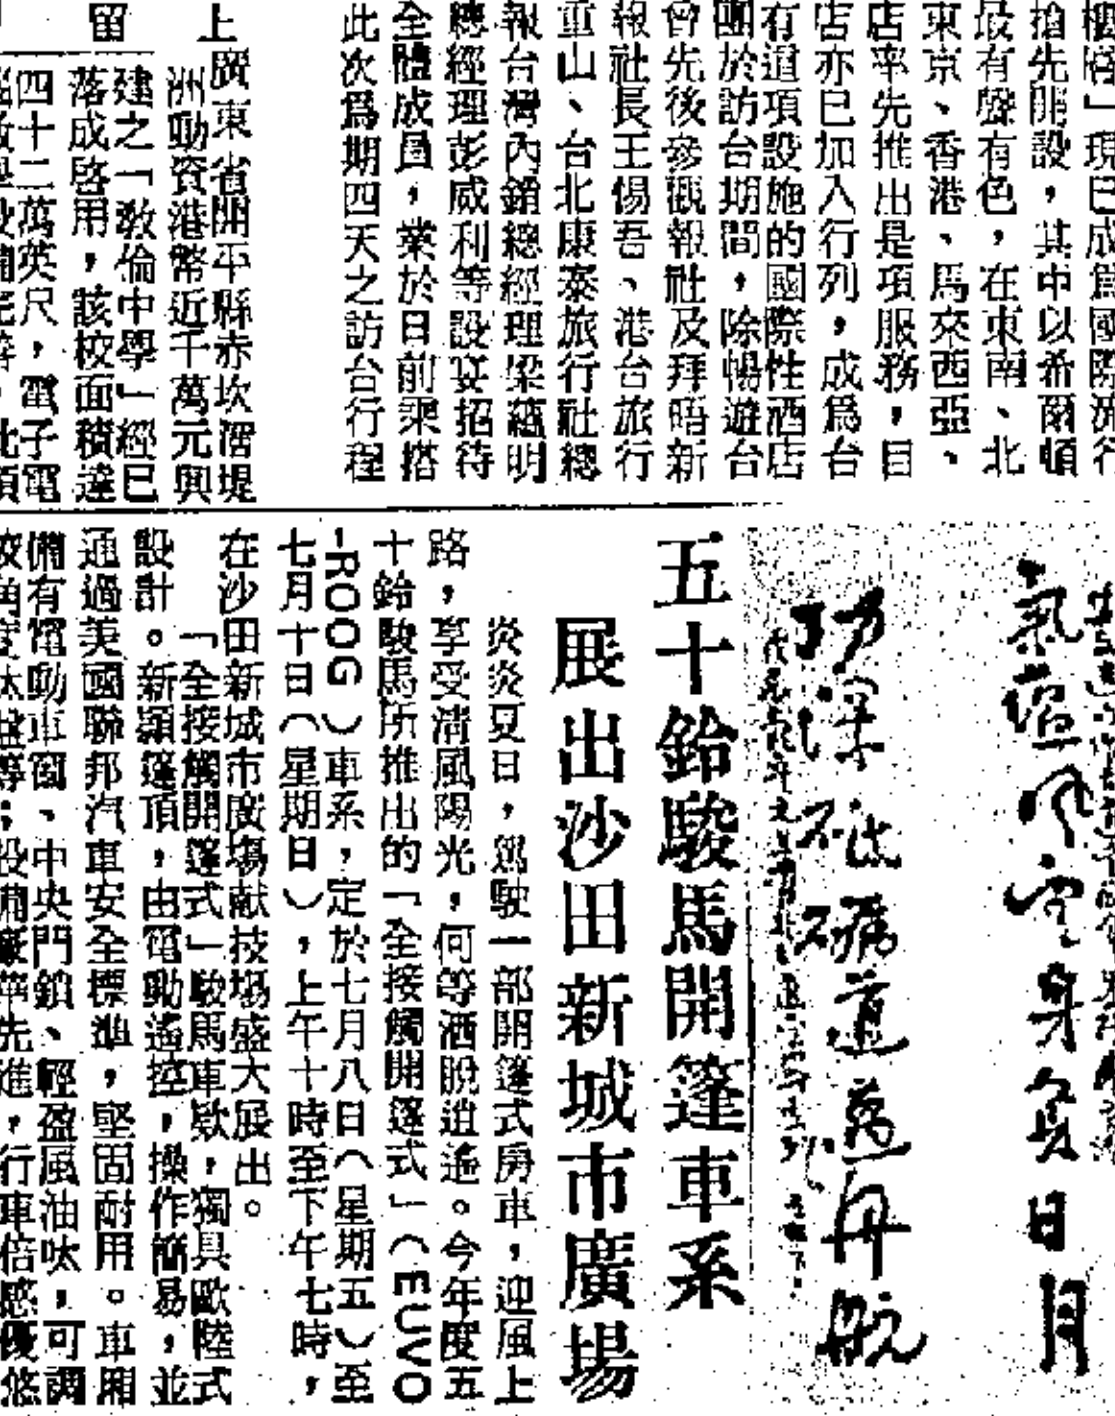 現已成爲國際旅行
搶先開設，其中以希爾頓
最有聲有色，在東南、北
東京、香港、馬來西亞、
店率先推出是項服務，目
店亦已加入行列，成爲台
有道項設施的國際性酒店
團於訪台期間，除暢遊台
會先後參觀報社及拜晤新
報社長王惕吾、港台旅行
重山、台北康泰旅行社總
報台灣內銷總經理梁蘊明
總經理彭威利等設宴招待
全體成員，業於日前乘搭
此次爲期四天之訪台行程
上
留
廣東省開平縣赤坎滘堤
洲動資港幣近千萬元興
建之「敎倫中學」經已
落成啓用，該校面積達
四十二萬英尺，電子電
氣
身負日月
功深
道慈航
五十鈴駿馬開篷車系
展出沙田新城市廣場
炎炎夏日，駕駛一部開篷式房車，迎風上
路，享受清風陽光，何等洒脫逍遙。今年度五
十鈴駿馬所推出的「全接觸開篷式」（EUVO
-ROOG）車系，定於七月八日（星期五）至
七月十日（星期日），上午十時至下午七時，
在沙田新城市廣塲献技塲盛大展出。
「全接觸開篷式」駿馬車欵，獨具歐陸式
設計。新穎篷頂，由電動遙控，操作簡易，並
通過美國聯邦汽車安全標準，堅固耐用。車廂
備有電動車窗、中央門鎖、輕盈風油呔，可調
較角度呔盤等；設備豪華先進，行車倍感優悠